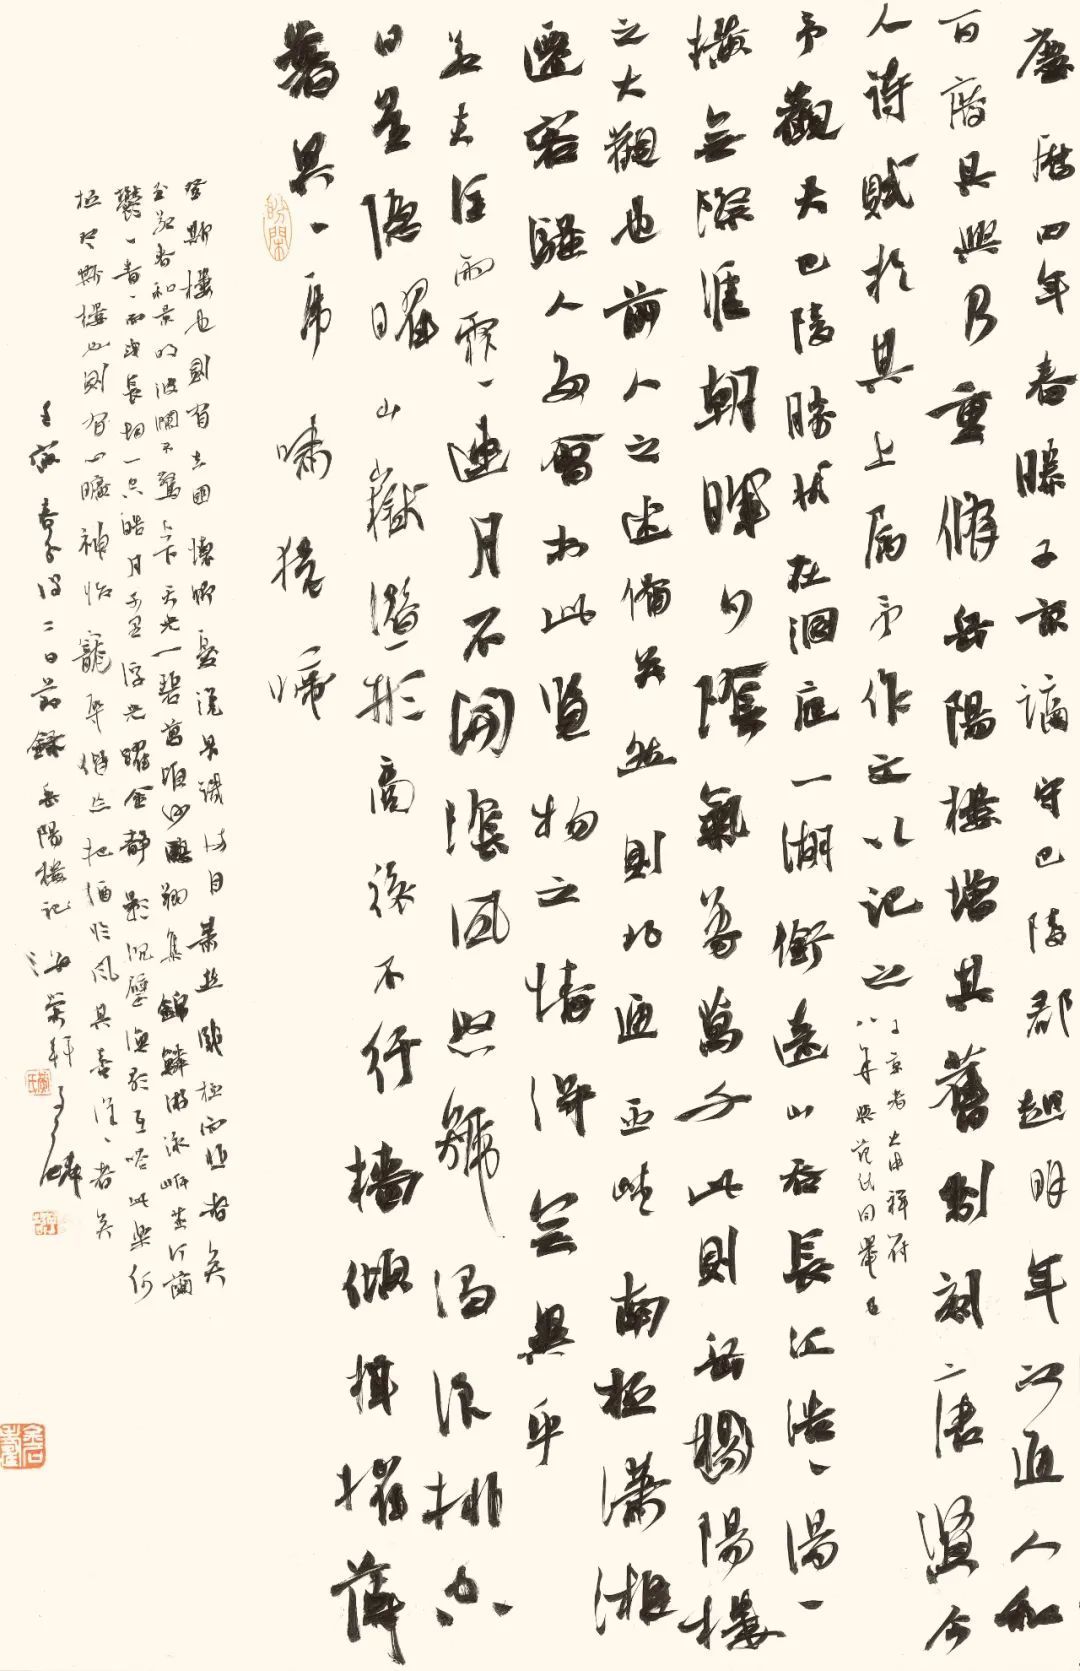 慶曆四年春滕子京謫守巴陵郡越明年政通人和
百廢具興乃重修岳陽樓增其舊制刻唐賢今
人詩賦於其上屬予作文以記之
子京者大中祥符
八年與范同舉
予觀夫巴陵勝狀在洞庭一湖銜遠山吞長江浩、湯、
橫無際涯朝暉夕陰氣象萬千此則岳楊陽樓
之大觀也前人之述備矣然則北通巫峽南極瀟湘
遷客騷人多會於此覽物之情得無異乎
若夫淫雨霏、連月不開陰風怒號濁浪排空、
日星隱曜山嶽潛形商旅不行檣傾楫摧薄
暮冥、虎嘯猿啼
登斯樓也則有去國懷鄉憂讒畏譏滿目蕭然感極而悲者矣
至若春和景明波瀾不驚上下天光一碧萬頃沙鷗翔集錦鱗游泳岸芷汀蘭
鬱、青、而或長煙一空皓月千里浮光躍金靜影沉璧漁歌互答此樂何
極登斯樓也則有心曠神怡寵辱偕忘把酒臨風其喜洋、者矣
壬寅春二日節錄岳陽樓記